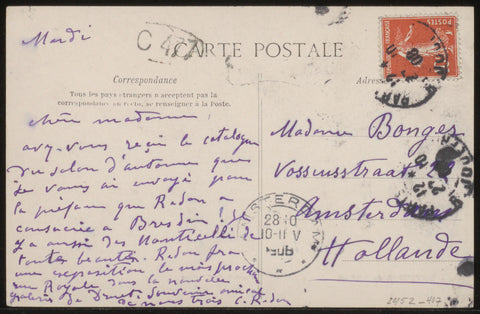 Mardi
C 47
CARTE POSTALE
Correspondance
Tous les pays étrangers n'acceptent pas la
correspondance au recto, se renseigner à la Poste.
Adres
POSTES
Chère madame
avez-vous reçu le catalogue
du salon d'automne que
je vous ai envoyé pour
la préface que Redon a
consacrée à Bresdin! Il
y a aussi des Monticelli de
toutes beautés. Redon fera
une exposition le mois prochain
rue Royale dans la nouvelle
galerie de Druet. Souvenir amical
de nous trois C. Redon
Madame Bonger
Vossiusstraat 22
Amsterdam
Hollande
AMSTERDAM
28 10
10-11 V
2452-417